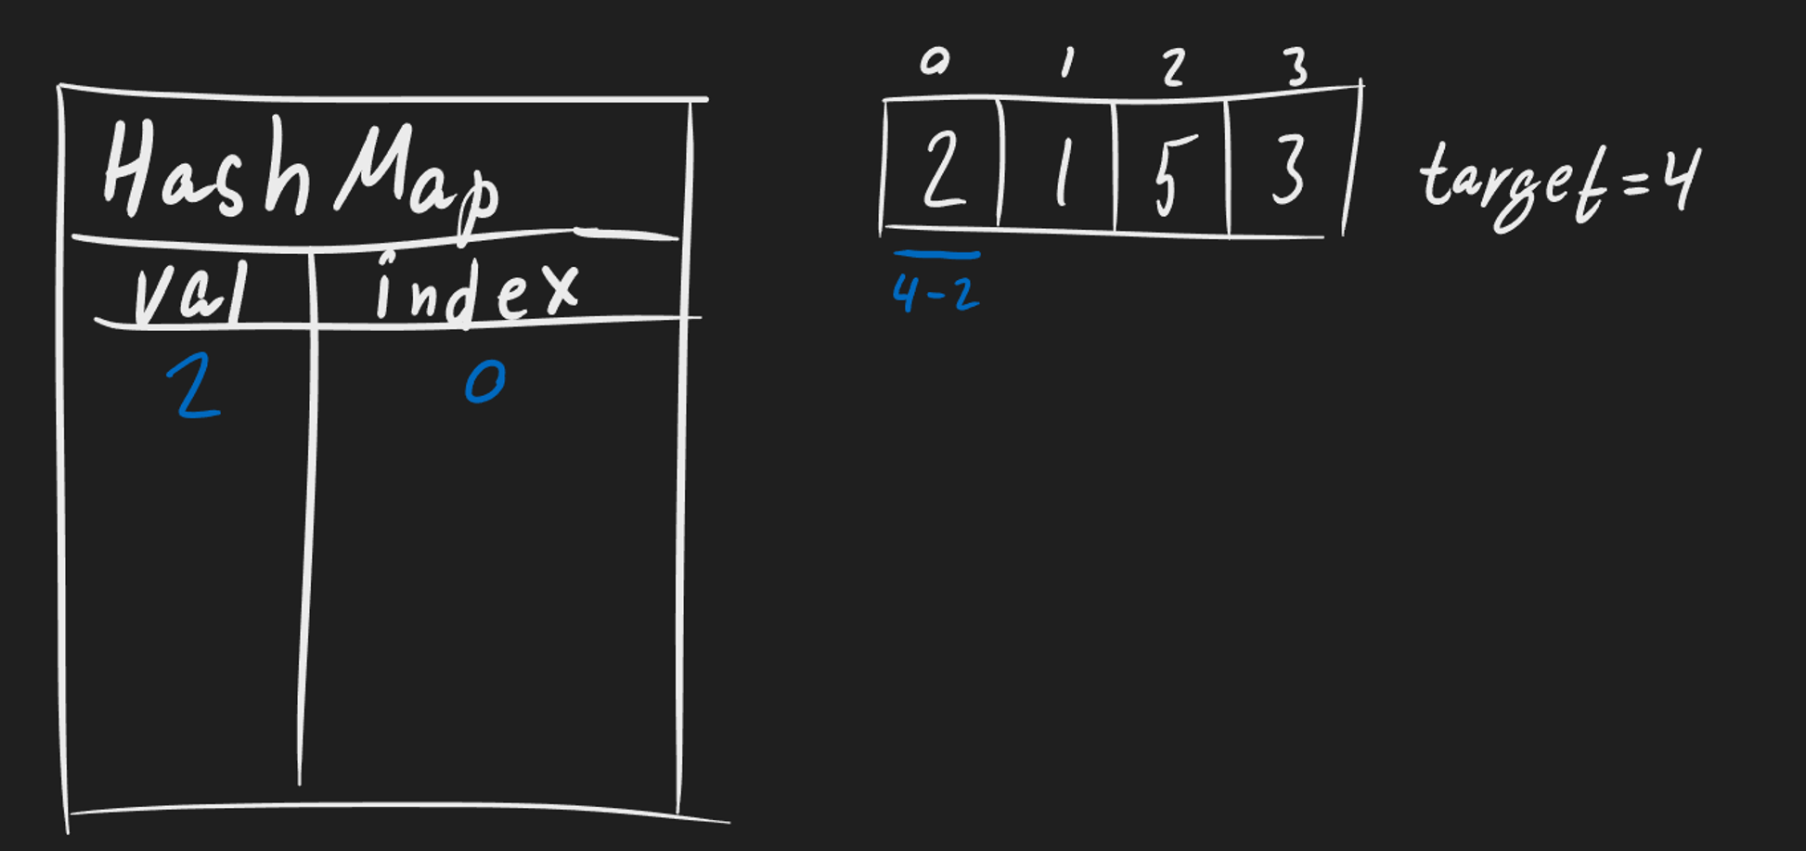 HashMap
val index
2 0
0 1 2 3
2 1 5 3 target=4
4-2